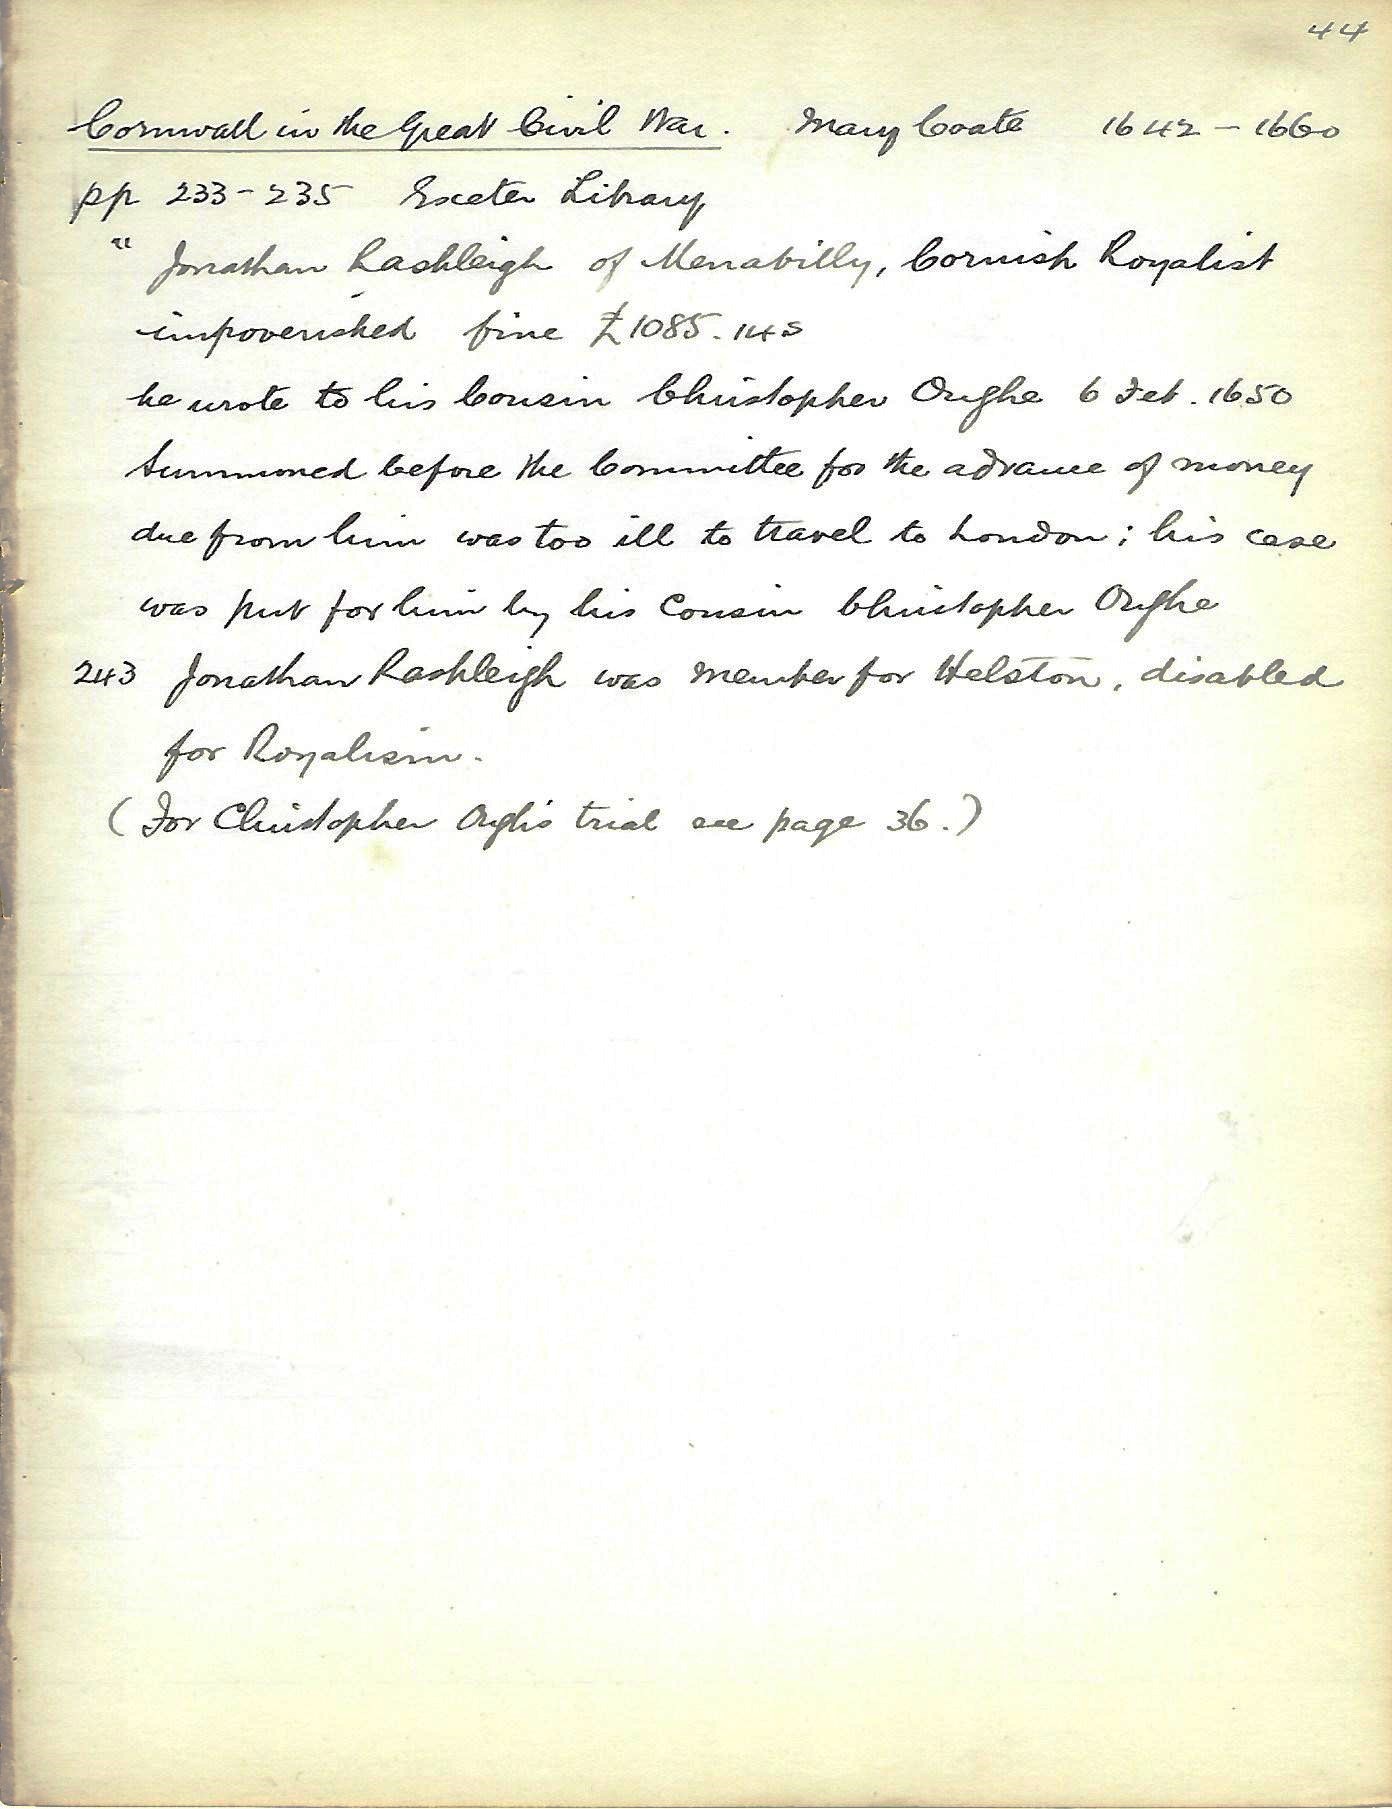 44
Cornwall in the Great Civil War. Mary Coate 1642 - 1660
pp 233 - 235 Exeter Library
" Jonathan Rashleigh of Menabilly, Cornish Royalist
impoverished fine £1085. 14s
he wrote to his Cousin Christopher Oughe 6 Feb. 1650
Summoned before the Committee for the advance of money
due from him was too ill to travel to London; his case
was put for him by his Cousin Christopher Oughe
243 Jonathan Rashleigh was Member for Helston, disabled
for Royalism.
(For Christopher Ough's trial see page 36.)